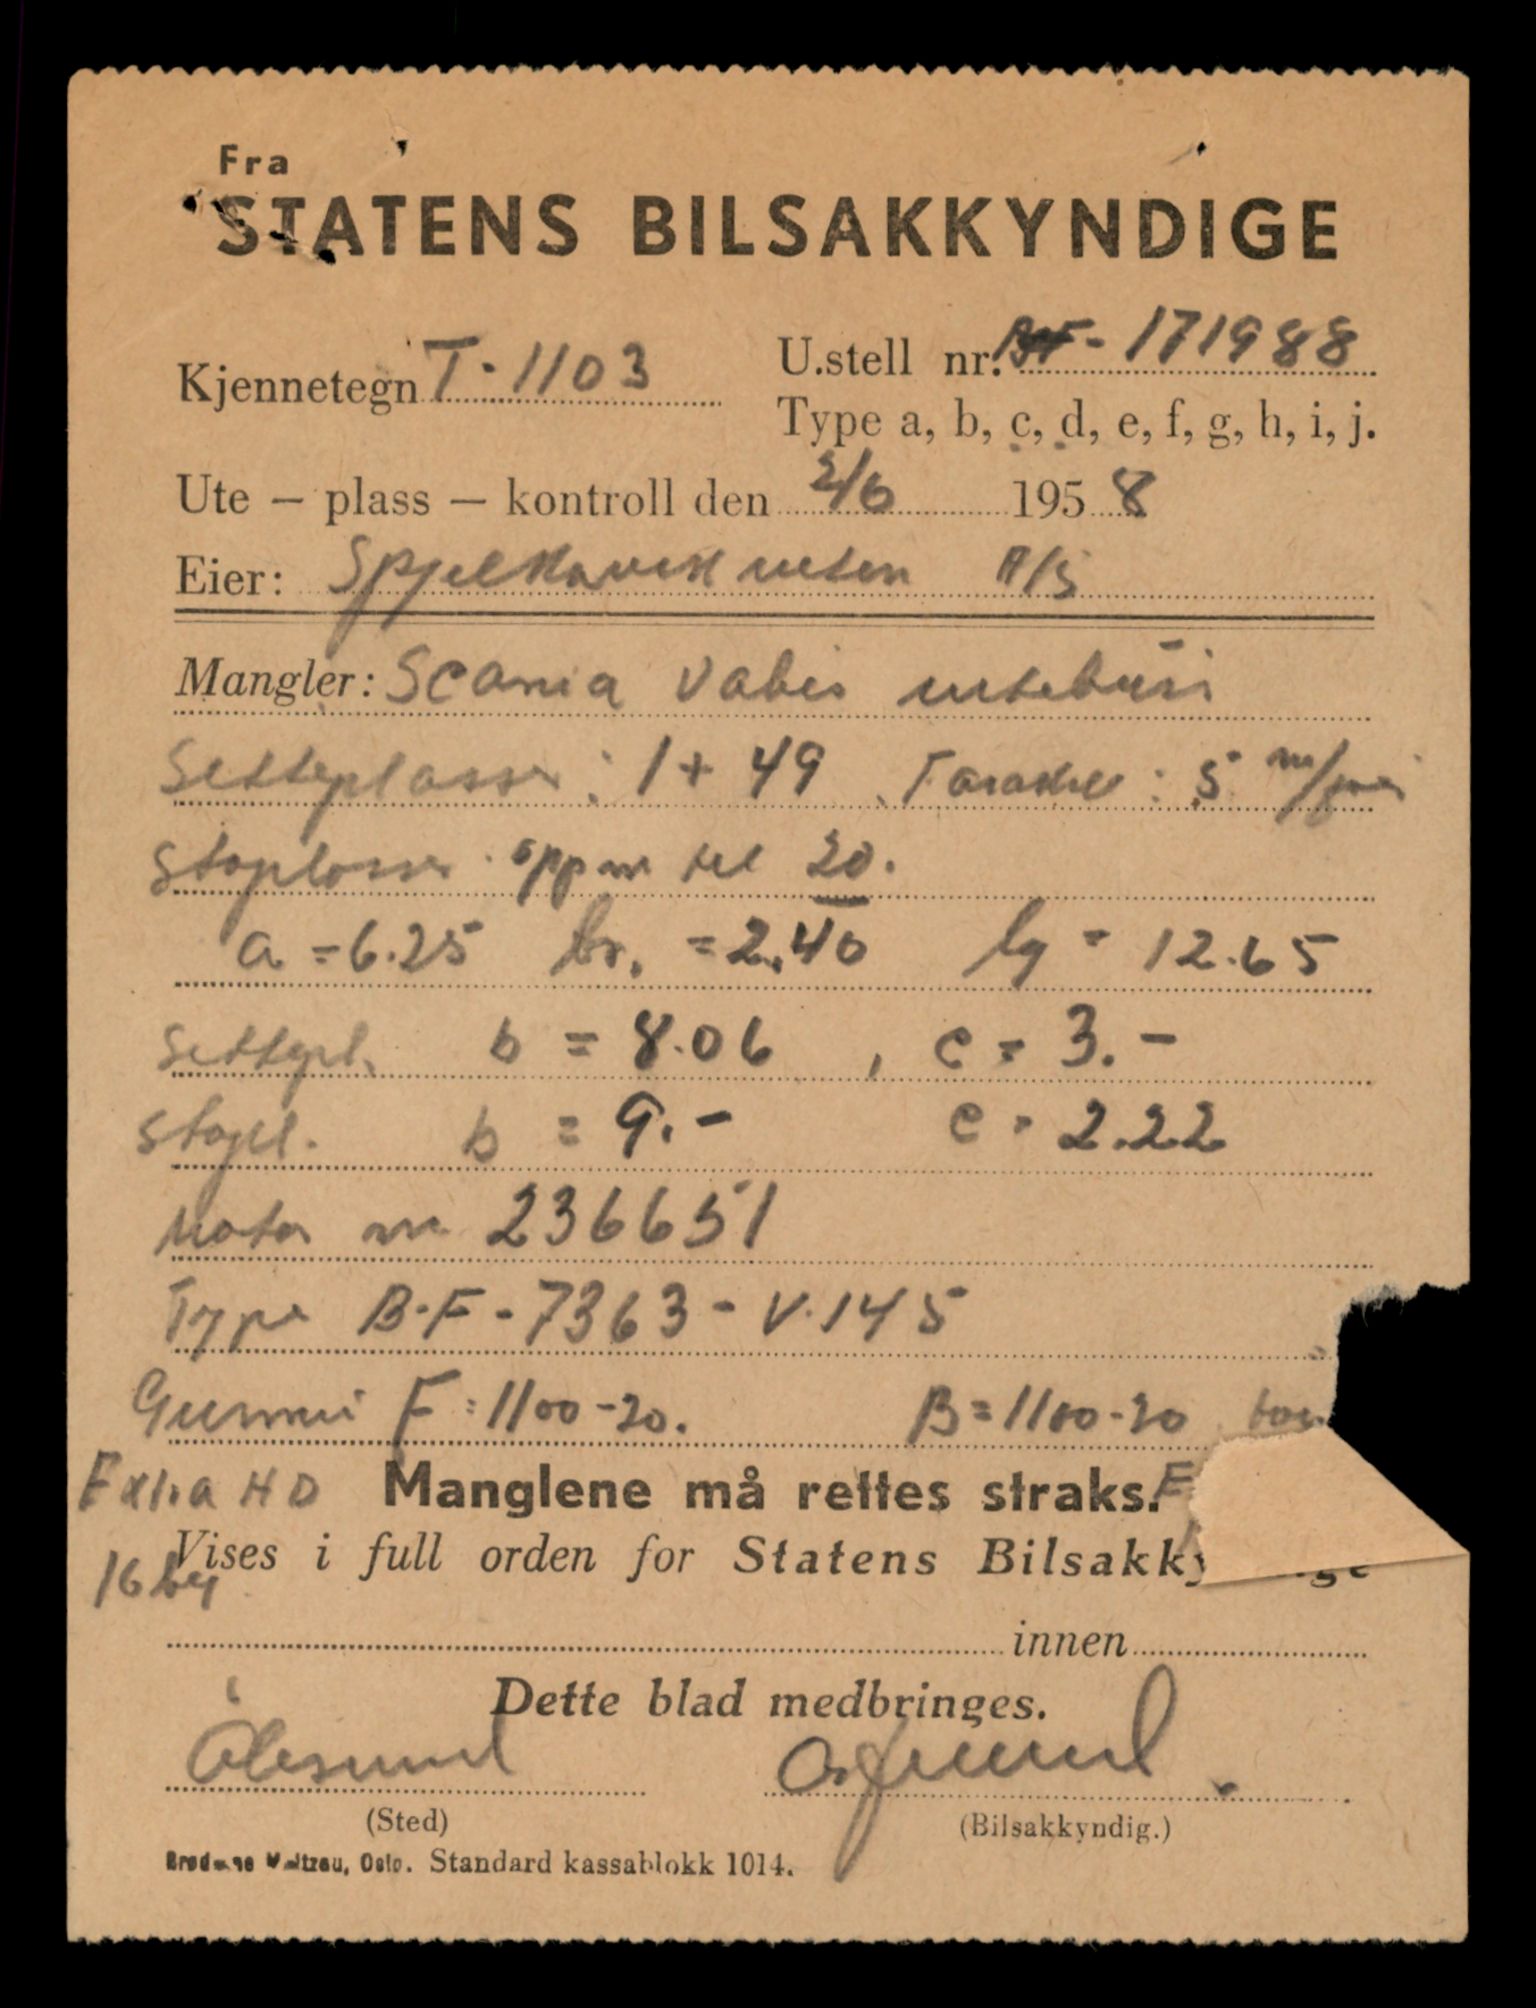 Fra
STATENS BILSAKKYNDIGE
Kjennetegn T-1103
U.stell nr. BF-171988
Type a, b, c, d, e, f, g, h, i, j.
Ute – plass – kontroll den 2/6 1958
Eier: Spjelkavik ruten A/S
Mangler: Scania Vabis rutebuss
Sitteplasser: 1+49
Ståplasser oppm til 20.
a = 6.25 br. = 2.40 lg = 12.65
Sittepl. b = 8.06, c = 3.-
Ståpl. b = 9.- c = 2.22
Motor nr 236651
Type B.F-7363-V.145
Gummi F=1100-20. B=1100-20
Extra HD
Manglene må rettes straks.
16 lag
Vises i full orden for Statens Bilsakky
innen
Dette blad medbringes.
Ålesund
(Sted)
(Bilsakkyndig.)
Brødrene Maltzau, Oslo. Standard kassablokk 1014.